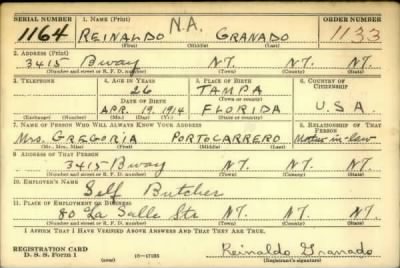 SERIAL NUMBER 1. NAME (Print) ORDER NUMBER
1164 REINALDO N.A. GRANADO 1133
(First) (Middle) (Last)
2. ADDRESS (Print)
3415 Bway N.Y. N.Y. N.Y.
(Number and street or R. F. D. number) (Town) (County) (State)
3. TELEPHONE 4. AGE IN YEARS 5. PLACE OF BIRTH 6. COUNTRY OF CITIZENSHIP
26 TAMPA
DATE OF BIRTH (Town or county)
APR. 19, 1914 FLORIDA U.S.A.
(Exchange) (Number) (Mo.) (Day) (Yr.) (State or country)
7. NAME OF PERSON WHO WILL ALWAYS KNOW YOUR ADDRESS 8. RELATIONSHIP OF THAT PERSON
Mrs. GREGORIA PORTOCARRERO Mother-in-law
(Mr., Mrs., Miss) (First) (Middle) (Last)
9. ADDRESS OF THAT PERSON
3415 Bway N.Y. N.Y. N.Y.
(Number and street or R. F. D. number) (Town) (County) (State)
10. EMPLOYER'S NAME
Self Butcher
11. PLACE OF EMPLOYMENT OR BUSINESS
80 La Salle Sts N.Y. N.Y.
(Number and street or R. F. D. number) (Town) (County) (State)
I AFFIRM THAT I HAVE VERIFIED ABOVE ANSWERS AND THAT THEY ARE TRUE.
REGISTRATION CARD
D. S. S. Form 1 (over) 16—17105 Reinaldo Granado
(Registrant's signature)